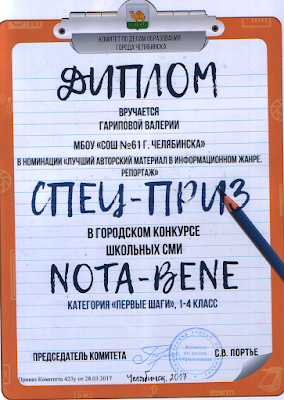 КОМИТЕТ ПО ДЕЛАМ ОБРАЗОВАНИЯ
ГОРОДА ЧЕЛЯБИНСКА
ДИПЛОМ
ВРУЧАЕТСЯ
ГАРИПОВОЙ ВАЛЕРИИ
МБОУ «СОШ №61 Г. ЧЕЛЯБИНСКА»
В НОМИНАЦИИ «ЛУЧШИЙ АВТОРСКИЙ МАТЕРИАЛ В ИНФОРМАЦИОННОМ ЖАНРЕ.
РЕПОРТАЖ»
СПЕЦ-ПРИЗ
В ГОРОДСКОМ КОНКУРСЕ
ШКОЛЬНЫХ СМИ
NOTA-BENE
КАТЕГОРИЯ «ПЕРВЫЕ ШАГИ», 1-4 КЛАСС
Комитет
по делам
образования
ПРЕДСЕДАТЕЛЬ КОМИТЕТА
С.В. ПОРТЬЕ
Приказ Комитета 423у от 28.03.2017
Челябинск, 2017